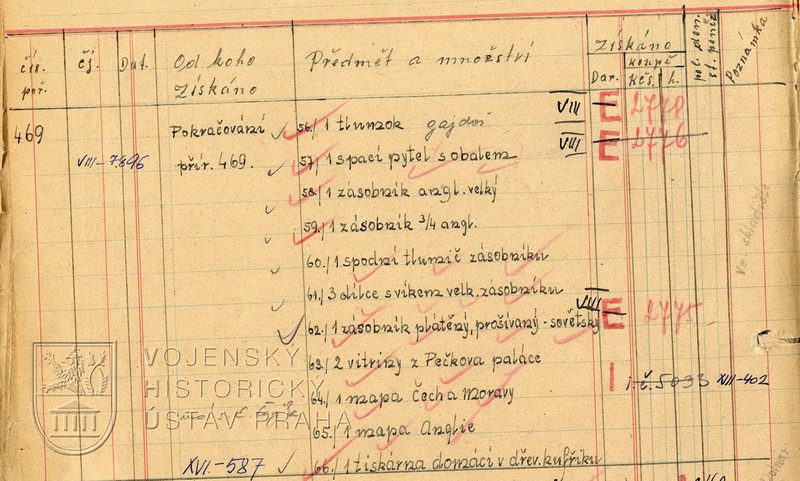 čís. poř. čj. Dat. Od koho získáno Předmět a množství Získáno Dar. koupě Kčs. h. Poznámka
469 Pokračování 56./ 1 tlumok gajdoš VIII E 2778
VIII-7896 přír. 469. 57./ 1 spací pytel s obalem VIII E 2776
58./ 1 zásobník angl. velký
59./ 1 zásobník 3/4 angl.
60./ 1 spodní tlumič zásobníku
61./ 3 dílce s víkem velk. zásobníku
62./ 1 zásobník plátěný, prošívaný - sovětský VIII E 2775
63./ 2 vitriny z Pečkova paláce
64./ 1 mapa Čech a Moravy I i.č. 5093 XIII-402
65./ 1 mapa Anglie
XVI-587 66./ 1 tiskárna domácí v dřev. kufříku
Ve skladišti
VOJENSKÝ
HISTORICKÝ
ÚSTAV PRAHA